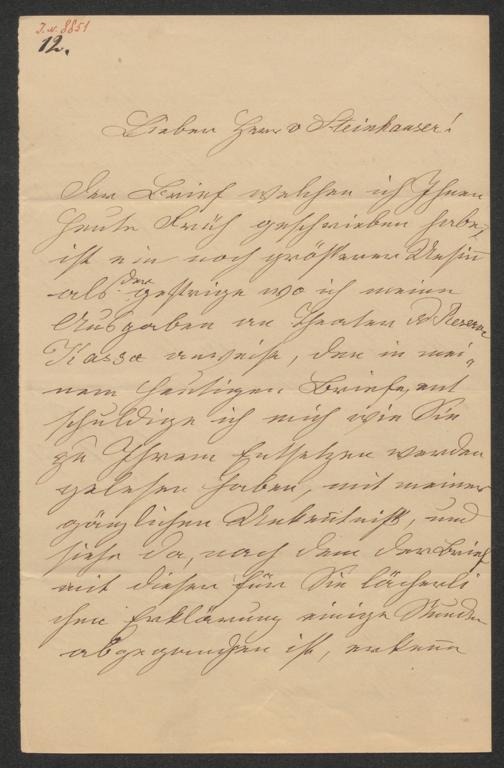 J. N. 8851
12.
Lieber Herr v Steinhauser!
Der Brief welchen ich Ihnen
heute Früh geschrieben habe,
ist ein noch größerer Unsinn
als der gestrige wo ich meine
Ausgaben an Theater Reserve
Kassa anweise, den in mei-
nem heutigen Briefe, ent
schuldige ich mich wie Sie
zu Ihrem Entsetzen werden
gelesen haben, mit meiner
gänzlichen Unkentniß, und
siehe da, nach dem der Brief
mit diesen für Sie lächerli
chen Erklärung einige Stunden
abgegangen ist, erkenn